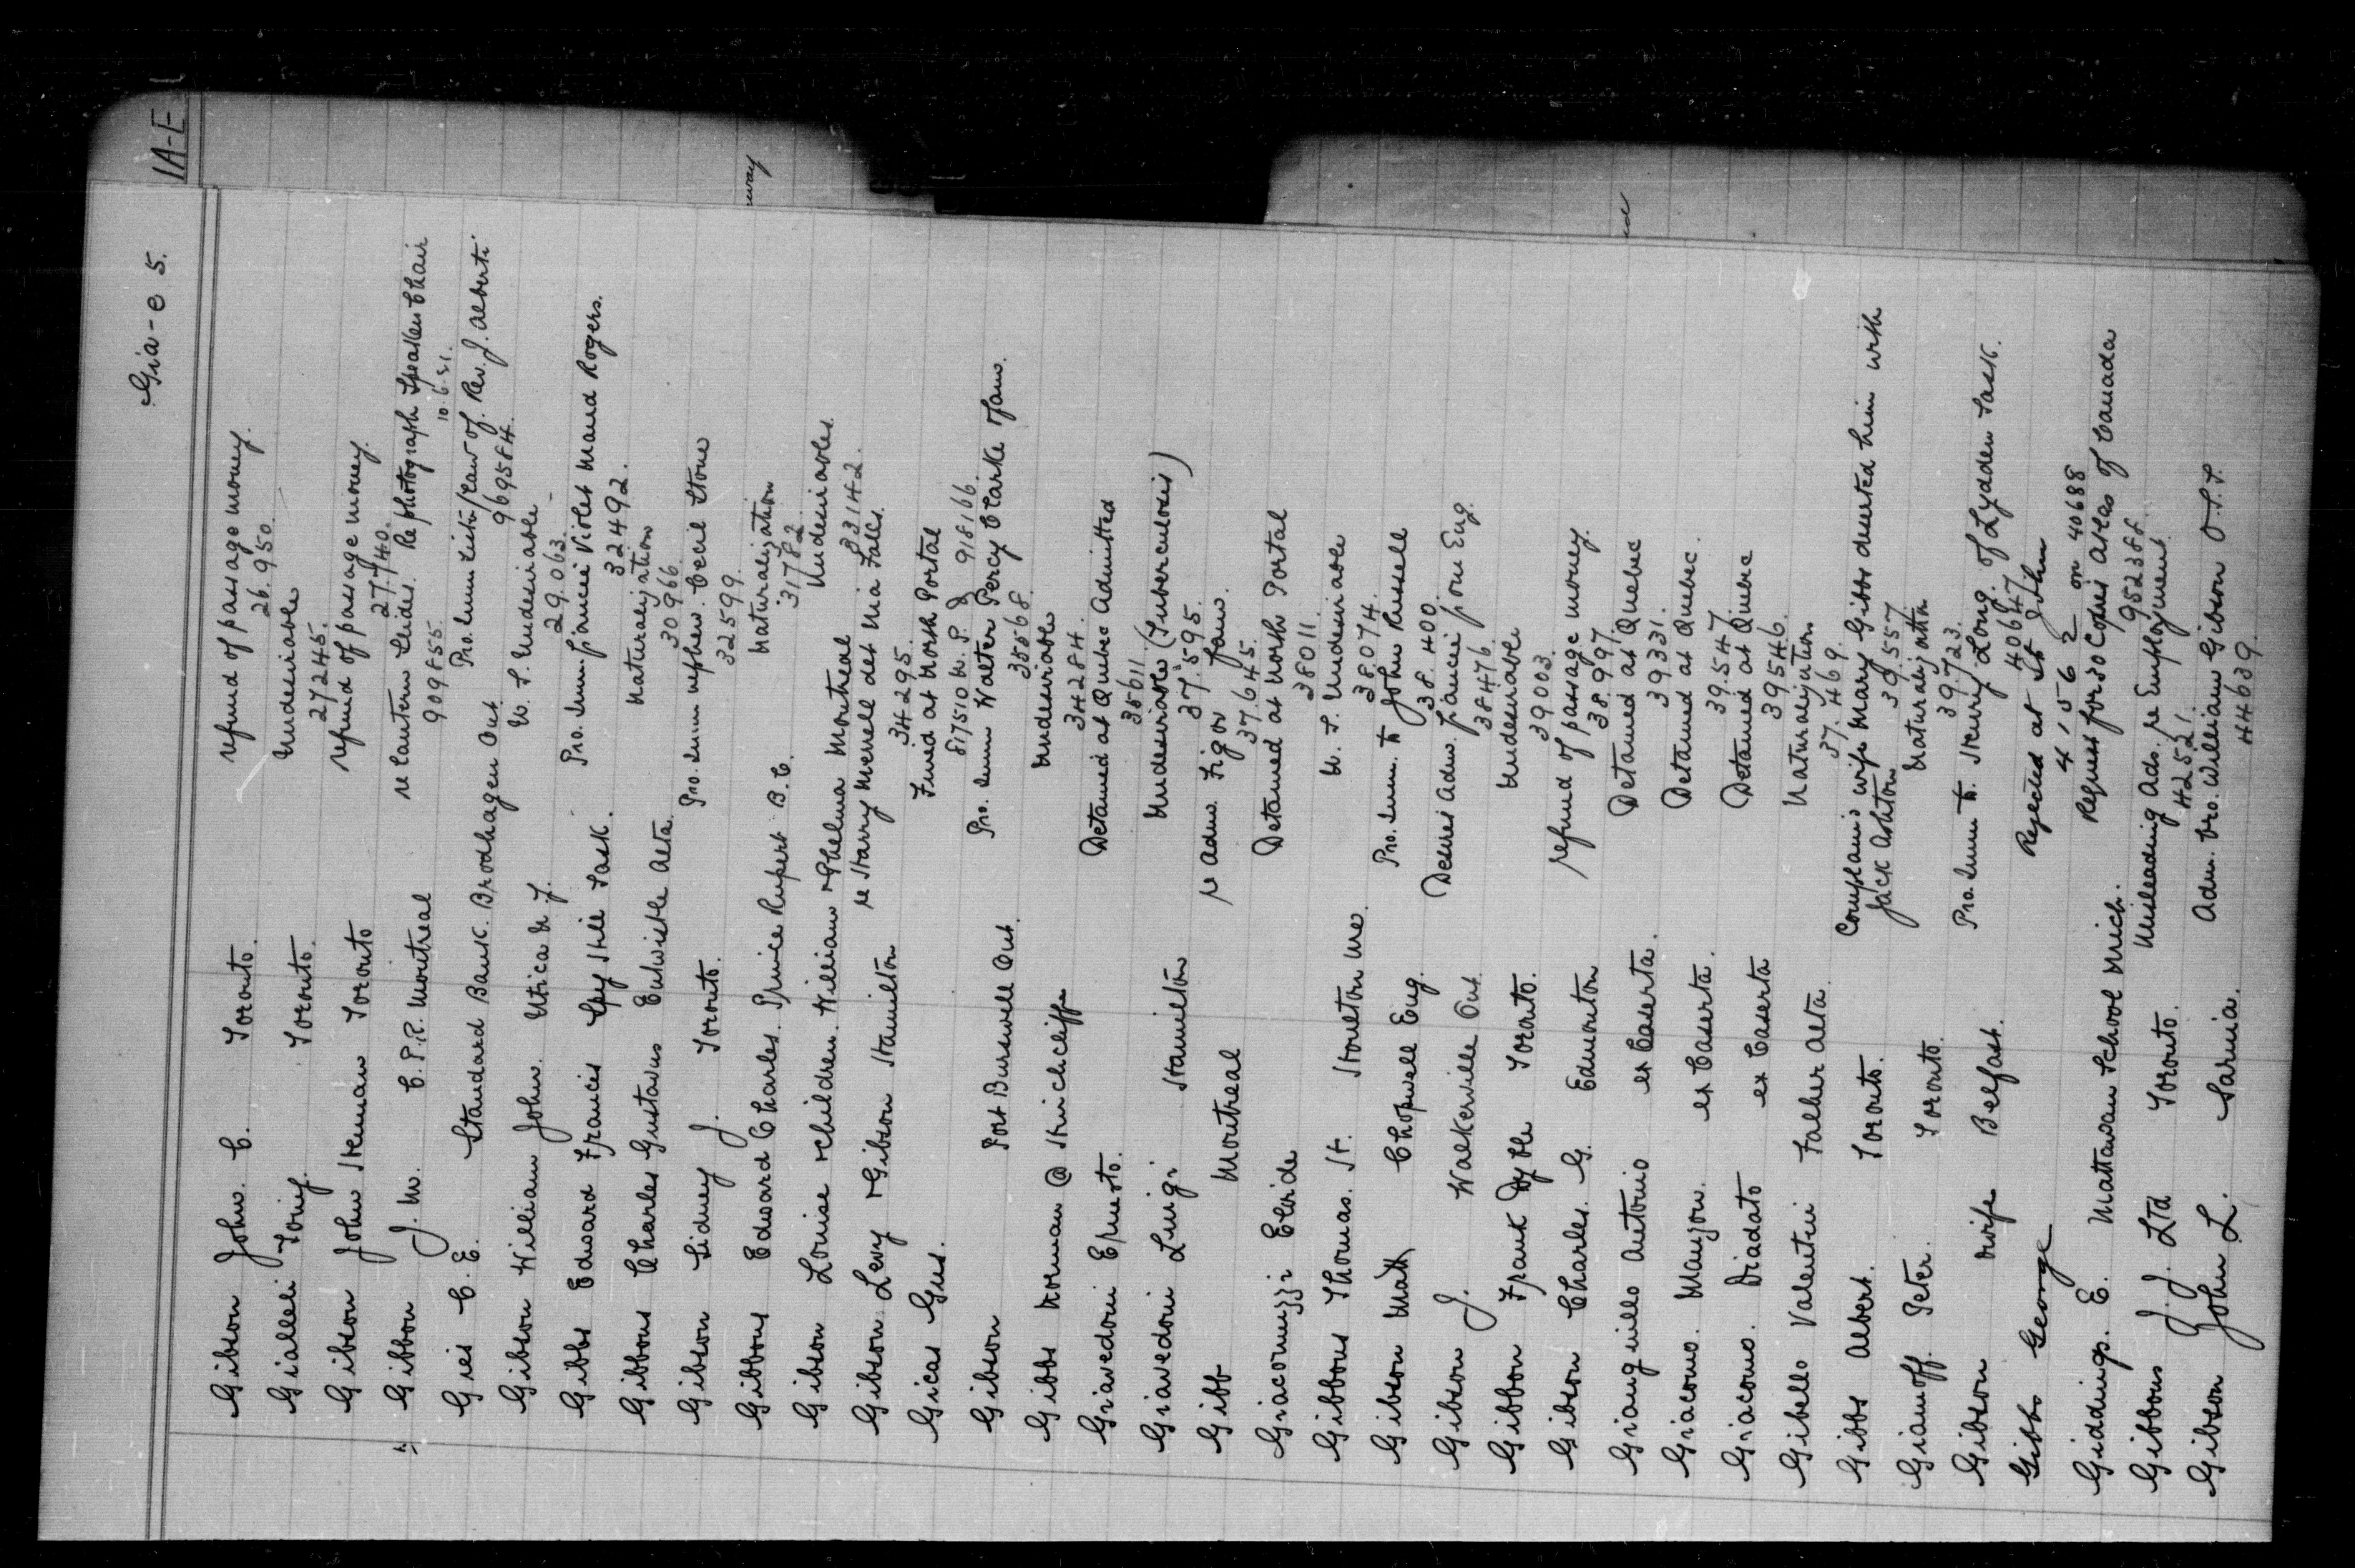 1A-E
Gia-e 5.
Gibson John. C. Toronto. refund of passage money.
26.950.
Gialleli Tony. Toronto. Undesirable
27245.
Gibson John Heman Toronto refund of passage money.
27.740.
Gibbon J. M. C.P.R. Montreal re lantern slides. Re photograph Speakers Chair
909855. 10.6.21.
Gies C. E. Standard Bank. Brodhagen Ont. Pro. Imm. of Rev. J. Alberti
969584.
Gibson William John. Utica N.Y. U.S. Undesirable
29.063.
Gibbs Edward Francis Spy Hill Sask. Pro. Imm. fiancée Violet Maud Rogers.
32492.
Gibbons Charles Gustavus Entwistle Alta. Naturalization
30966.
Gibson Sidney J. Toronto. Pro. Imm. nephew. Cecil Stone
32599.
Gibbons Edward Charles. Prince Rupert B.C. Naturalization
31782.
Gibson Louise & children. William & Thelma Montreal Undesirables.
33142.
Gibson. Levy & Gibson Hamilton re Harry Merrell det Nia Falls.
34295.
Gicas Gus. Fined at North Portal
817510 N.P. & 918166.
Gibson Port Burwell Ont. Pro. Imm Walter Percy Clarke & fam.
35568.
Gibbs Norman @ Hinchcliffe Undesirable
34284.
Giavedoni Ernesto. Detained at Quebec Admitted
35611.
Giavedoni Luigi Hamilton Undesirable (Tuberculosis)
37.595.
Gibb Montreal re Adm. Figov fam.
37.645.
Giacomuzzi Eloide Detained at North Portal
38011.
Gibbons Thomas. H. Houlton Me. U.S. Undesirable
38.074.
Gibson Matt Chopwell Eng. Pro. Imm. to John Russell
38.400.
Gibson J. Walkerville Ont. Desires Adm. fiancée from Eng.
38476.
Gibbon Frank Dyble Toronto. Undesirable
39003.
Gibson Charles. G. Edmonton refund of passage money.
38.997.
Gianquillo Antonio ex Caserta. Detained at Quebec
39331.
Giacomo. Maujou. ex Caserta. Detained at Quebec.
39.547
Giacomo. Diadato ex Caserta Detained at Quebec
39546.
Gibello Valentin Falher Alta. Naturalization
37.469.
Gibbs Albert. Toronto. Complains wife Mary Gibbs deserted him with
Jack Ashton 39.557.
Gianoff. Peter. Toronto. Naturalization
39.723.
Gibson & wife Belfast. Pro. Imm to. Henry Long. of Lydden Sask.
40647
Gibbs George Rejected at St John
41562 on 40688
Giddings. E. Mattawan School Mich. Request for 30 Copies Atlas of Canada
952388.
Gibbons J. J. Ltd Toronto. Misleading Ads. re Employment.
42521.
Gibson John L. Sarnia. Adm. bro. William Gibson O.T.T.
44639.